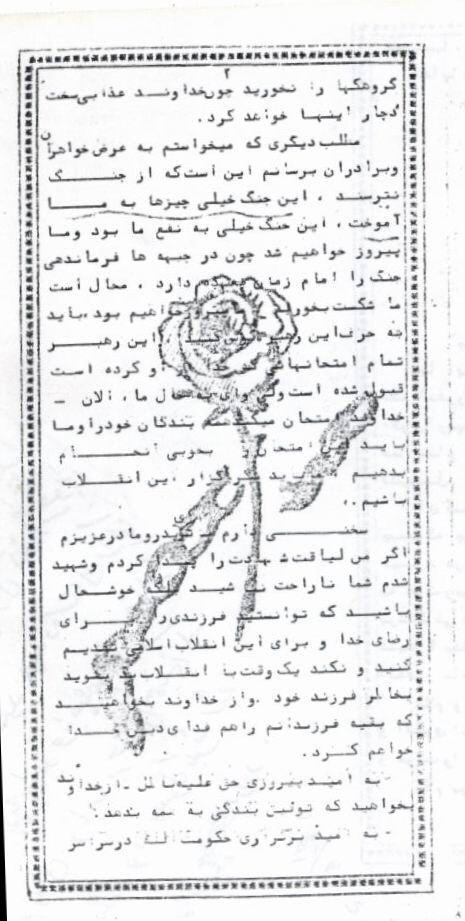 ۲
گروهکها را نخورید چون خداوند عذابی سخت
دچار اینها خواهد کرد.
مطلب دیگری که میخواستم به عرض خواهران
وبرادران برسانم این است که از جنگ
نترسند ، این جنگ خیلی چیزها به ما
آموخت، این جنگ خیلی به نفع ما بود وما
پیروز خواهیم شد چون در جبهه ها فرماندهی
جنگ را امام زمان دارد ، محال است
ما شکست بخوریم خواهیم بود، باید
به حرف این رهبر این رهبر
تمام امتحانهای خدا از او کرده است
قبول شده است ولی وای به حال ما، الان -
خداوند امتحان میکند بندگان خودرا وما
باید این امتحان را بخوبی انجام
بدهیم این انقلاب
باشیم ..
دارم پدرومادرعزیزم
اگر من لیاقت شهادت را پیدا کردم وشهید
شدم شما ناراحت خوشحال
باشید که توانستید فرزندی را برای
رضای خدا و برای این انقلاب اسلامی تقدیم
کنید و نکند یک وقت به انقلاب بد بگوئید
بخاطر فرزند خود .واز خداوند بخواهید
که بقیه فرزندانم راهم فدای دین خدا
خواهم کرد.
- به امید پیروزی حق علیه باطل -ازخداوند
بخواهید که توفیق بندگی به همه بدهد.
- به امید برقراری حکومت الله درسراسر